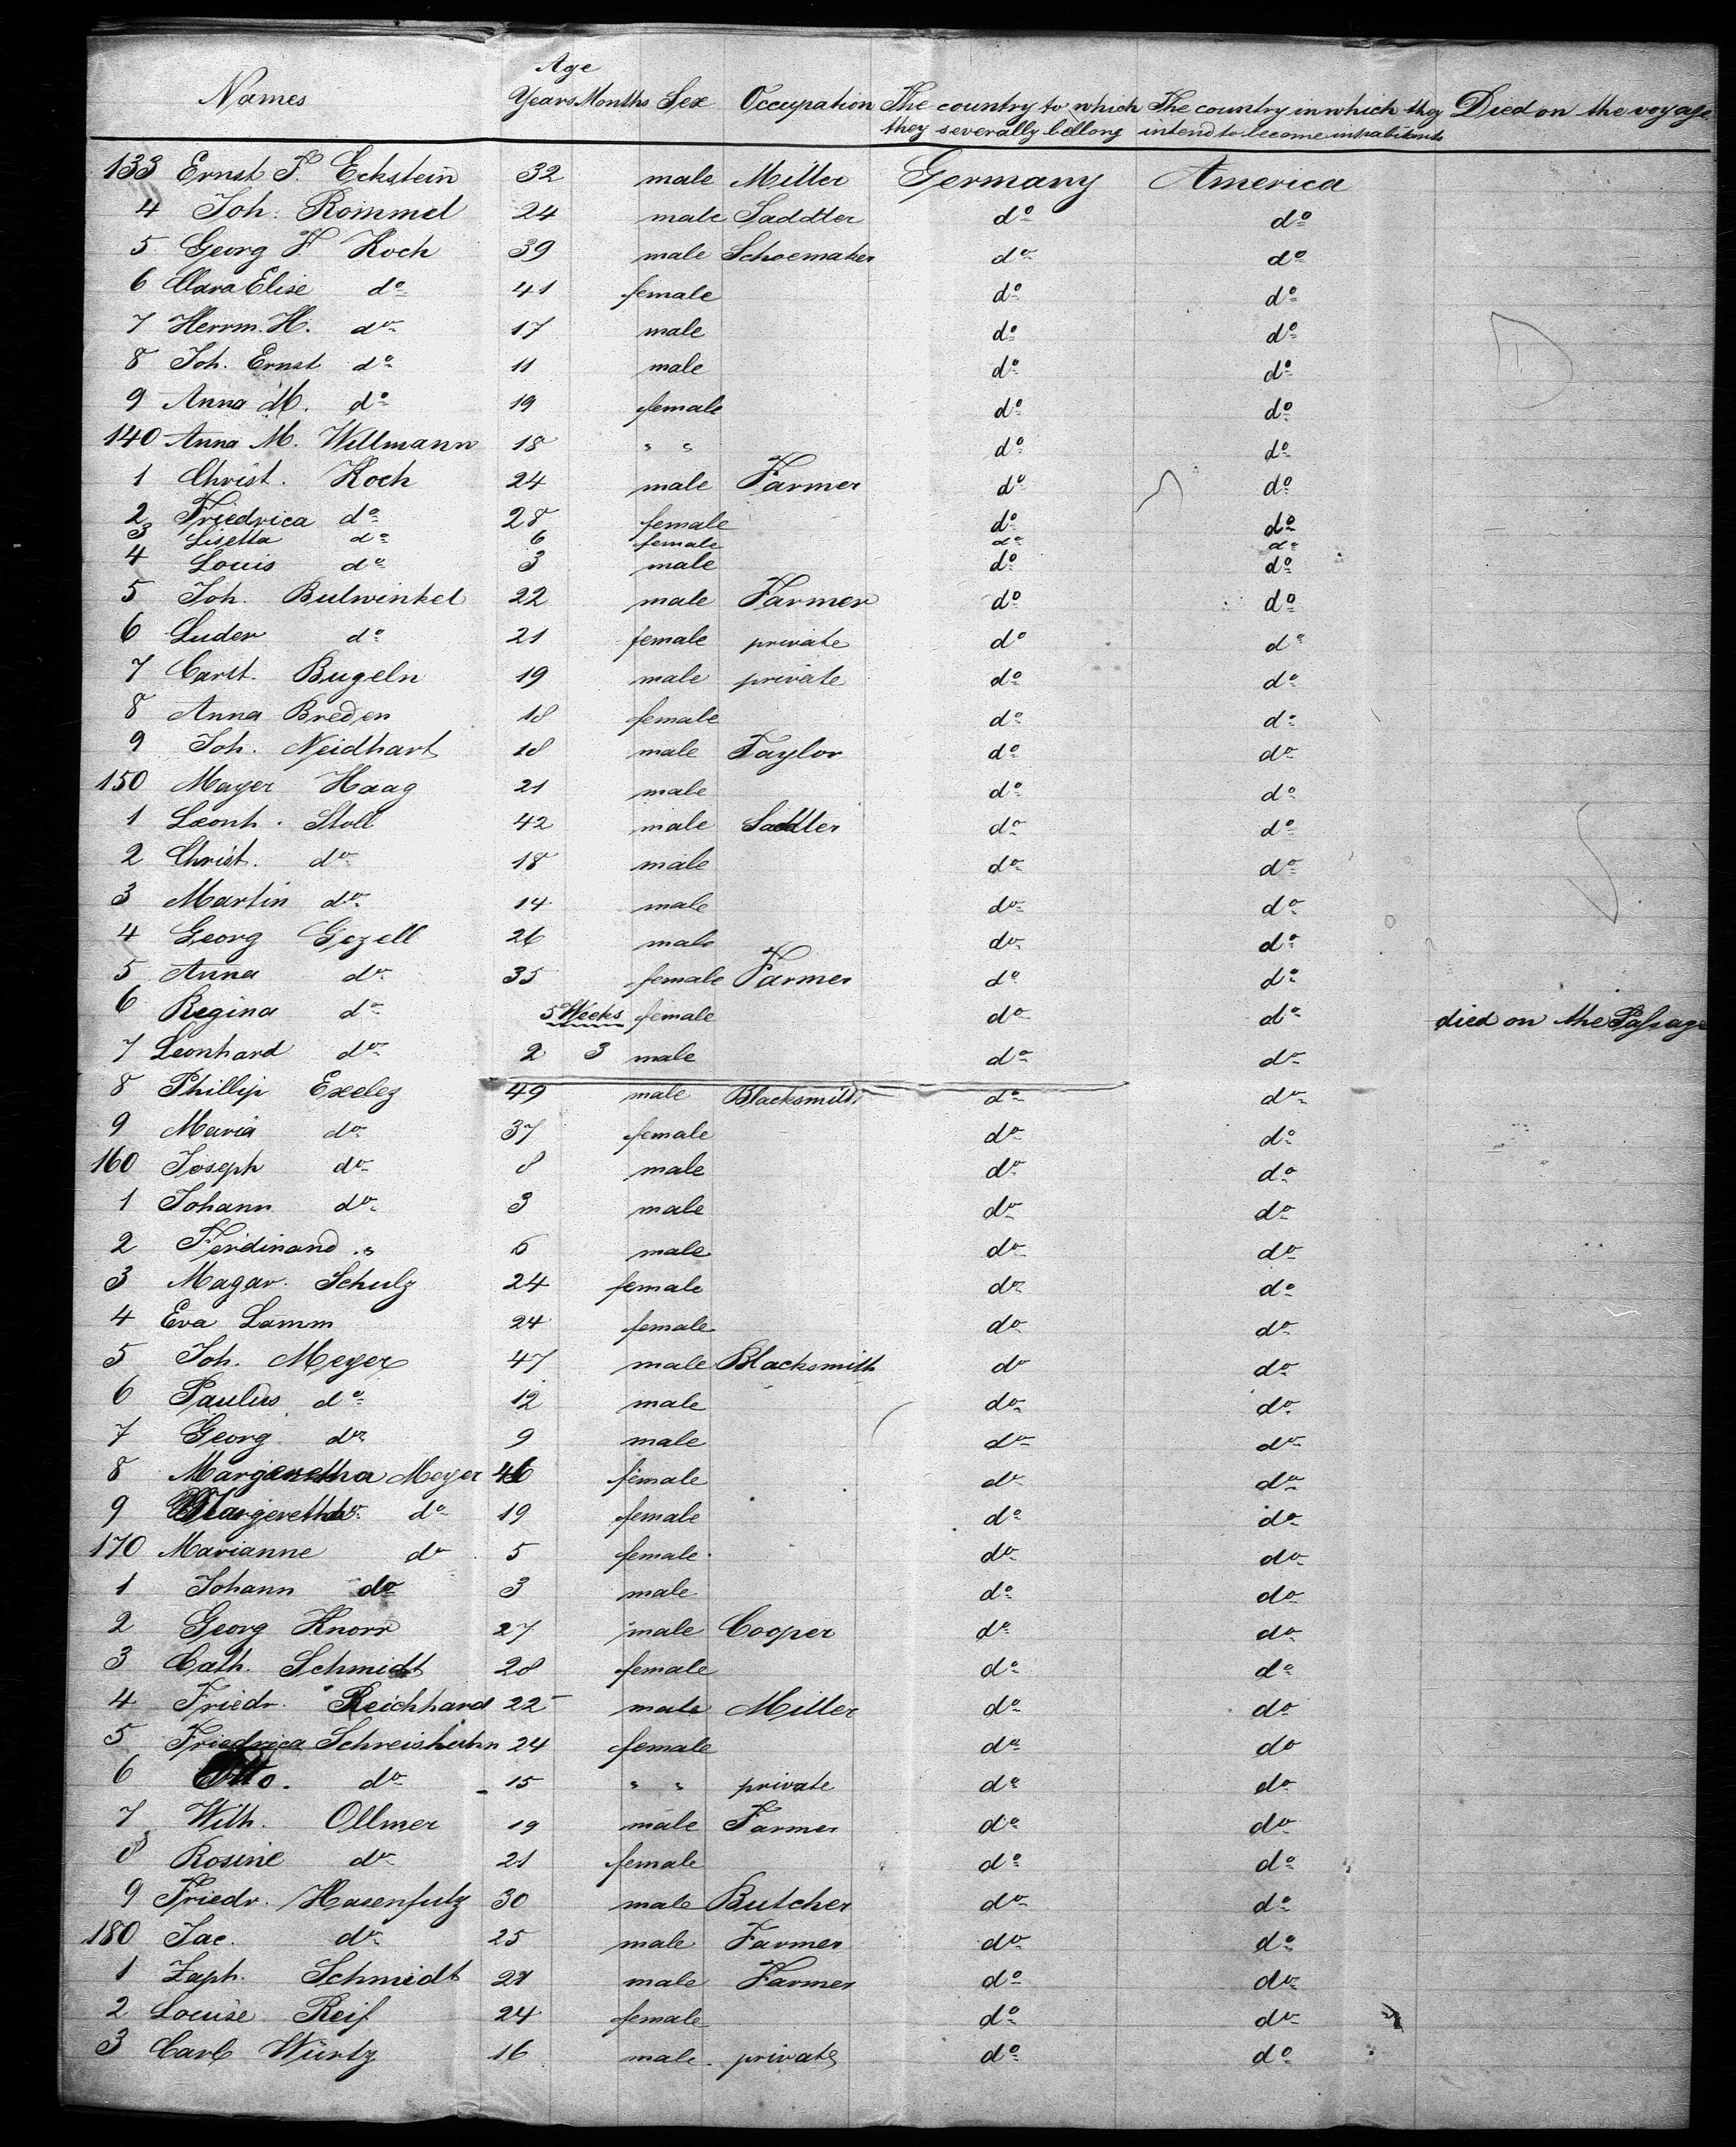 Age
Names Years Months Sex Occupation The country to which The country in which they Died on the voyage
they severally bellong intend to become inhabitants
133 Ernst F. Eckstein 32 male Miller Germany America
4 Joh. Rommel 24 male Saddler do do
5 Georg F. Koch 39 male Schoemaker do do
6 Clara Elise do 41 female do do
7 Herrm. H. do 17 male do do
8 Joh. Ernst do 11 male do do
9 Anna M. do 19 female do do
140 Anna M. Willmann 18 " " do do
1 Christ. Koch 24 male Farmer do do
2 Friedrica do 28 female do do
3 Lisetta do 6 female do do
4 Louis do 3 male do do
5 Joh. Bulwinkel 22 male Farmer do do
6 Luder do 21 female private do do
7 Carst. Bugeln 19 male private do do
8 Anna Breden 18 female do do
9 Joh. Neidhart 18 male Taylor do do
150 Mayer Haag 21 male do do
1 Leonh. Stoll 42 male Saddler do do
2 Christ. do 18 male do do
3 Martin do 14 male do do
4 Georg Gezell 26 male do do
5 Anna do 35 female Farmer do do
6 Regina do 5 Weeks female do do died on the Passage
7 Leonhard do 2 3 male do do
8 Phillip Exelez 49 male Blacksmith do do
9 Maria do 37 female do do
160 Joseph do 8 male do do
1 Johann do 3 male do do
2 Ferdinand " 6 male do do
3 Magar. Schulz 24 female do do
4 Eva Lamm 24 female do do
5 Joh. Meyer 47 male Blacksmith do do
6 Paulus do 12 male do do
7 Georg do 9 male do do
8 Margaretha Meyer 46 female do do
9 Margeretha do 19 female do do
170 Marianne do 5 female do do
1 Johann do 3 male do do
2 Georg Knorr 27 male Cooper do do
3 Cath. Schmidt 28 female do do
4 Friedr. Reichhard 22 male Miller do do
5 Friedrica Schreishuhn 24 female do do
6 Otto. do 15 " " private do do
7 Wilh. Ollmer 19 male Farmer do do
8 Rosine do 21 female do do
9 Friedr. Hasenfulz 30 male Butcher do do
180 Jac. do 25 male Farmer do do
1 Zaph. Schmidt 27 male Farmer do do
2 Louise Reif 24 female do do
3 Carl Würtz 16 male private do do